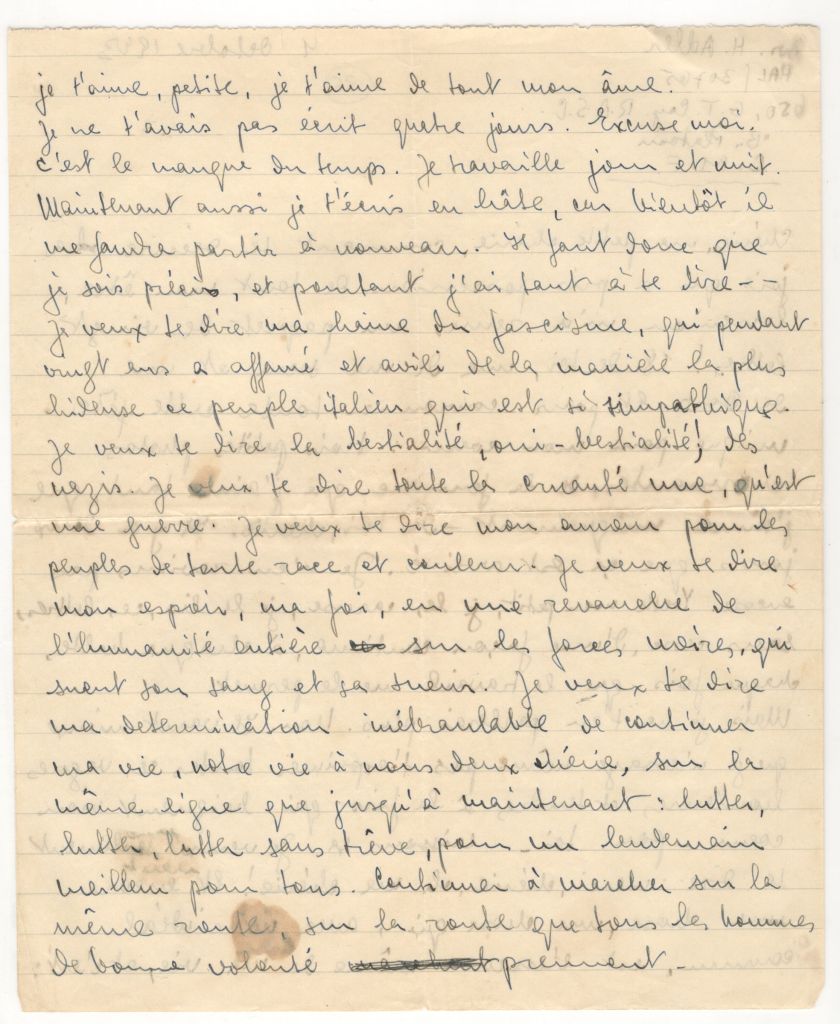 je t'aime, petite, je t'aime de tout mon âme.
Je ne t'avais pas écrit quatre jours. Excuse moi.
c'est le manque du temps. Je travaille jour et nuit.
Maintenant aussi je t'écris en hâte, car bientôt il
me faudra partir à nouveau. Il faut donc que
je sois précis, et pourtant j'ai tant à te dire - -
Je veux te dire ma haine du fascisme, qui pendant
vingt ans a affamé et avili de la manière la plus
hideuse ce peuple italien qui est si simpathique.
Je veux te dire la bestialité, oui - bestialité! des
nazis. Je veux te dire toute la cruauté nue, qu'est
une guerre. Je veux te dire mon amour pour les
peuples de toute race et couleur. Je veux te dire
mon espoir, ma foi, en une revanche de
l'humanité entière sur les forces noires, qui
sucent son sang et sa sueur. Je veux te dire
ma determination inébranlable de continuer
ma vie, notre vie à nous deux chérie, sur la
même ligne que jusqu'à maintenant : lutter,
lutter, lutter sans trêve, pour un lendemain
meilleur pour tous. Continuer à marcher sur la
même route, sur la route que tous les hommes
de bonne volonté prennent. -